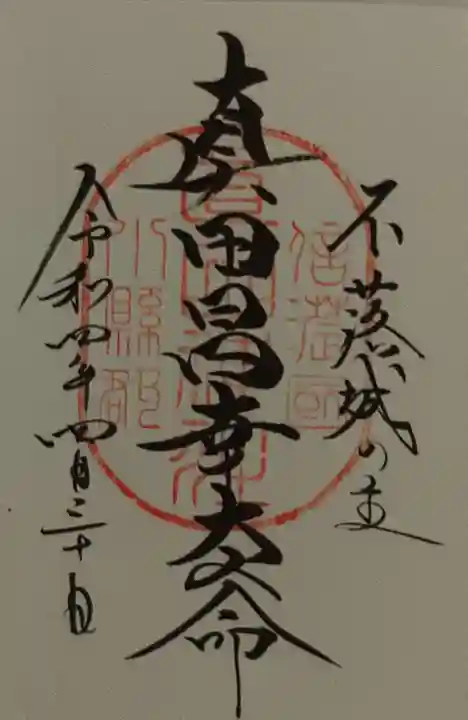 不落城の主
真田昌幸大命
信濃國
小縣郡
令和四年四月二十日